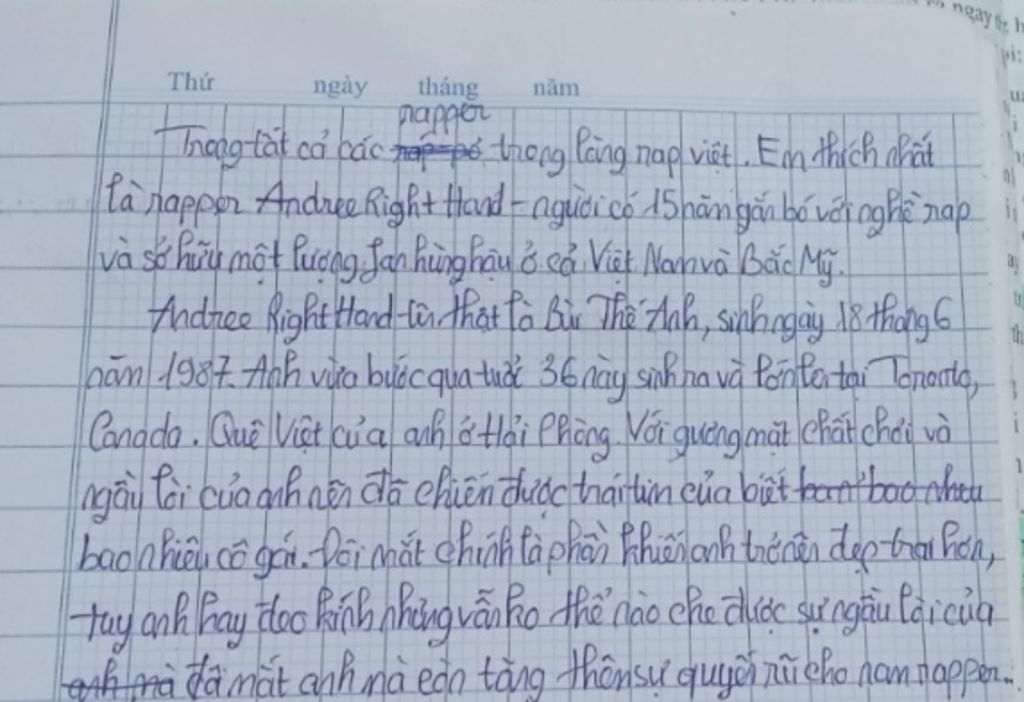 Thứ ngày tháng năm
rapper
Trong tất cả các trong làng rap việt. Em thích nhất
là rapper Andree Right Hand - người có 15 năm gắn bó với nghề rap
và sở hữu một lượng fan hùng hậu ở cả Việt Nam và Bắc Mỹ.
Andree Right Hand tên thật là Bùi Thế Anh, sinh ngày 18 tháng 6
năm 1987. Anh vừa bước qua tuổi 36 này sinh ra và lớn lên tại Toronto,
Canada. Quê Việt của anh ở Hải Phòng. Với gương mặt chất chơi và
ngầu lòi của anh nên đã chiến được trái tim của biết bao nhiêu
bao nhiêu cô gái. Đôi mắt chính là phần khiến anh trở nên đẹp trai hơn,
tuy anh hay đeo kính nhưng vẫn ko thể nào che được sự ngầu lòi của
anh mà đôi mắt anh mà còn tăng thêm sự quyến rũ cho nam rapper.